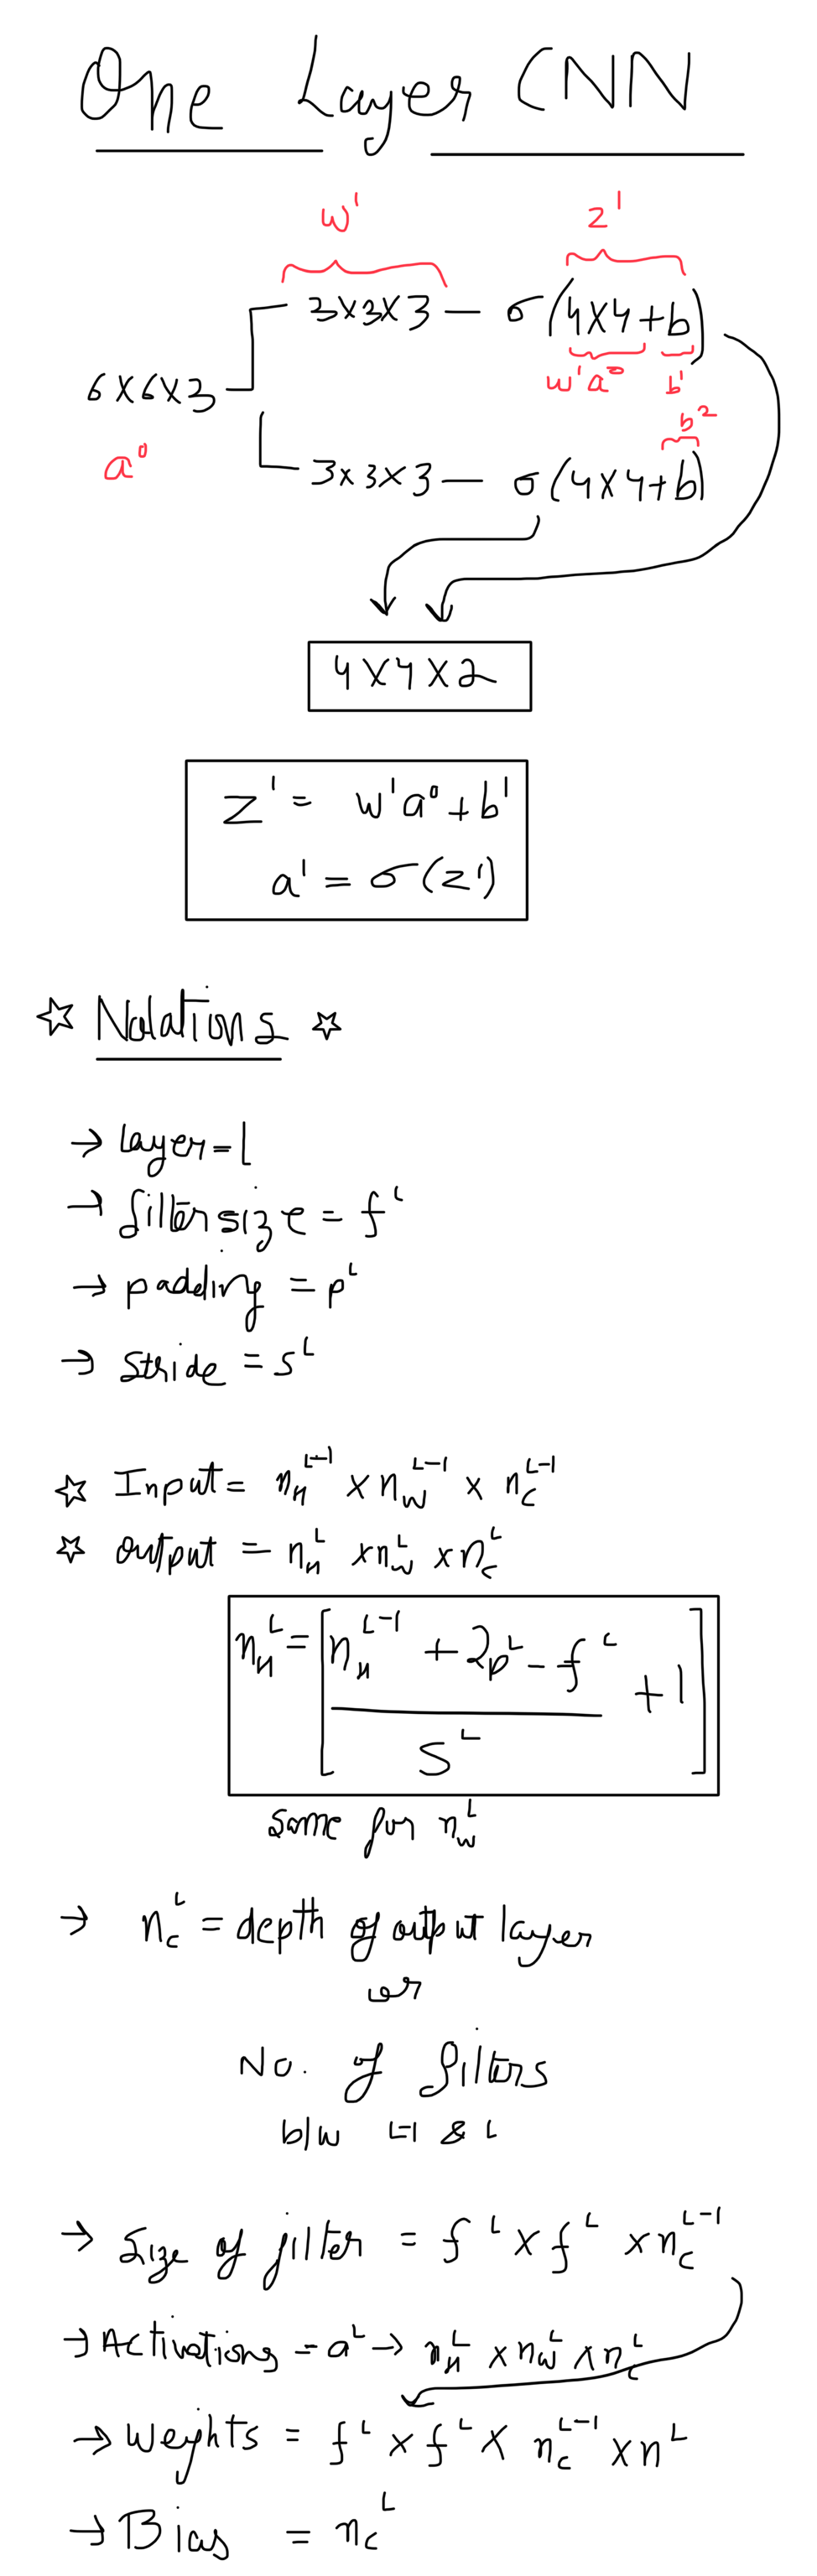 One Layer CNN
w¹ z¹
3x3x3 — σ(4x4+b)
w¹a⁰ b¹
6x6x3
a⁰
b²
3x3x3 — σ(4x4+b)
4x4x2
z¹ = w¹a⁰+b¹
a¹ = σ(z¹)
☆ Notations ☆
→ layer = l
→ filter size = fᴸ
→ padding = pᴸ
→ stride = sᴸ
☆ Input = n_Hᴸ⁻¹ x n_wᴸ⁻¹ x n_cᴸ⁻¹
☆ output = n_Hᴸ x n_wᴸ x n_cᴸ
n_Hᴸ = [ (n_Hᴸ⁻¹ + 2pᴸ - fᴸ) / sᴸ + 1 ]
same for n_wᴸ
→ n_cᴸ = depth of output layer
or
No. of filters
b/w L-1 & L
→ Size of filter = fᴸ x fᴸ x n_cᴸ⁻¹
→ Activations = aᴸ → n_Hᴸ x n_wᴸ x n_cᴸ
→ Weights = fᴸ x fᴸ x n_cᴸ⁻¹ x nᴸ
→ Bias = n_cᴸ